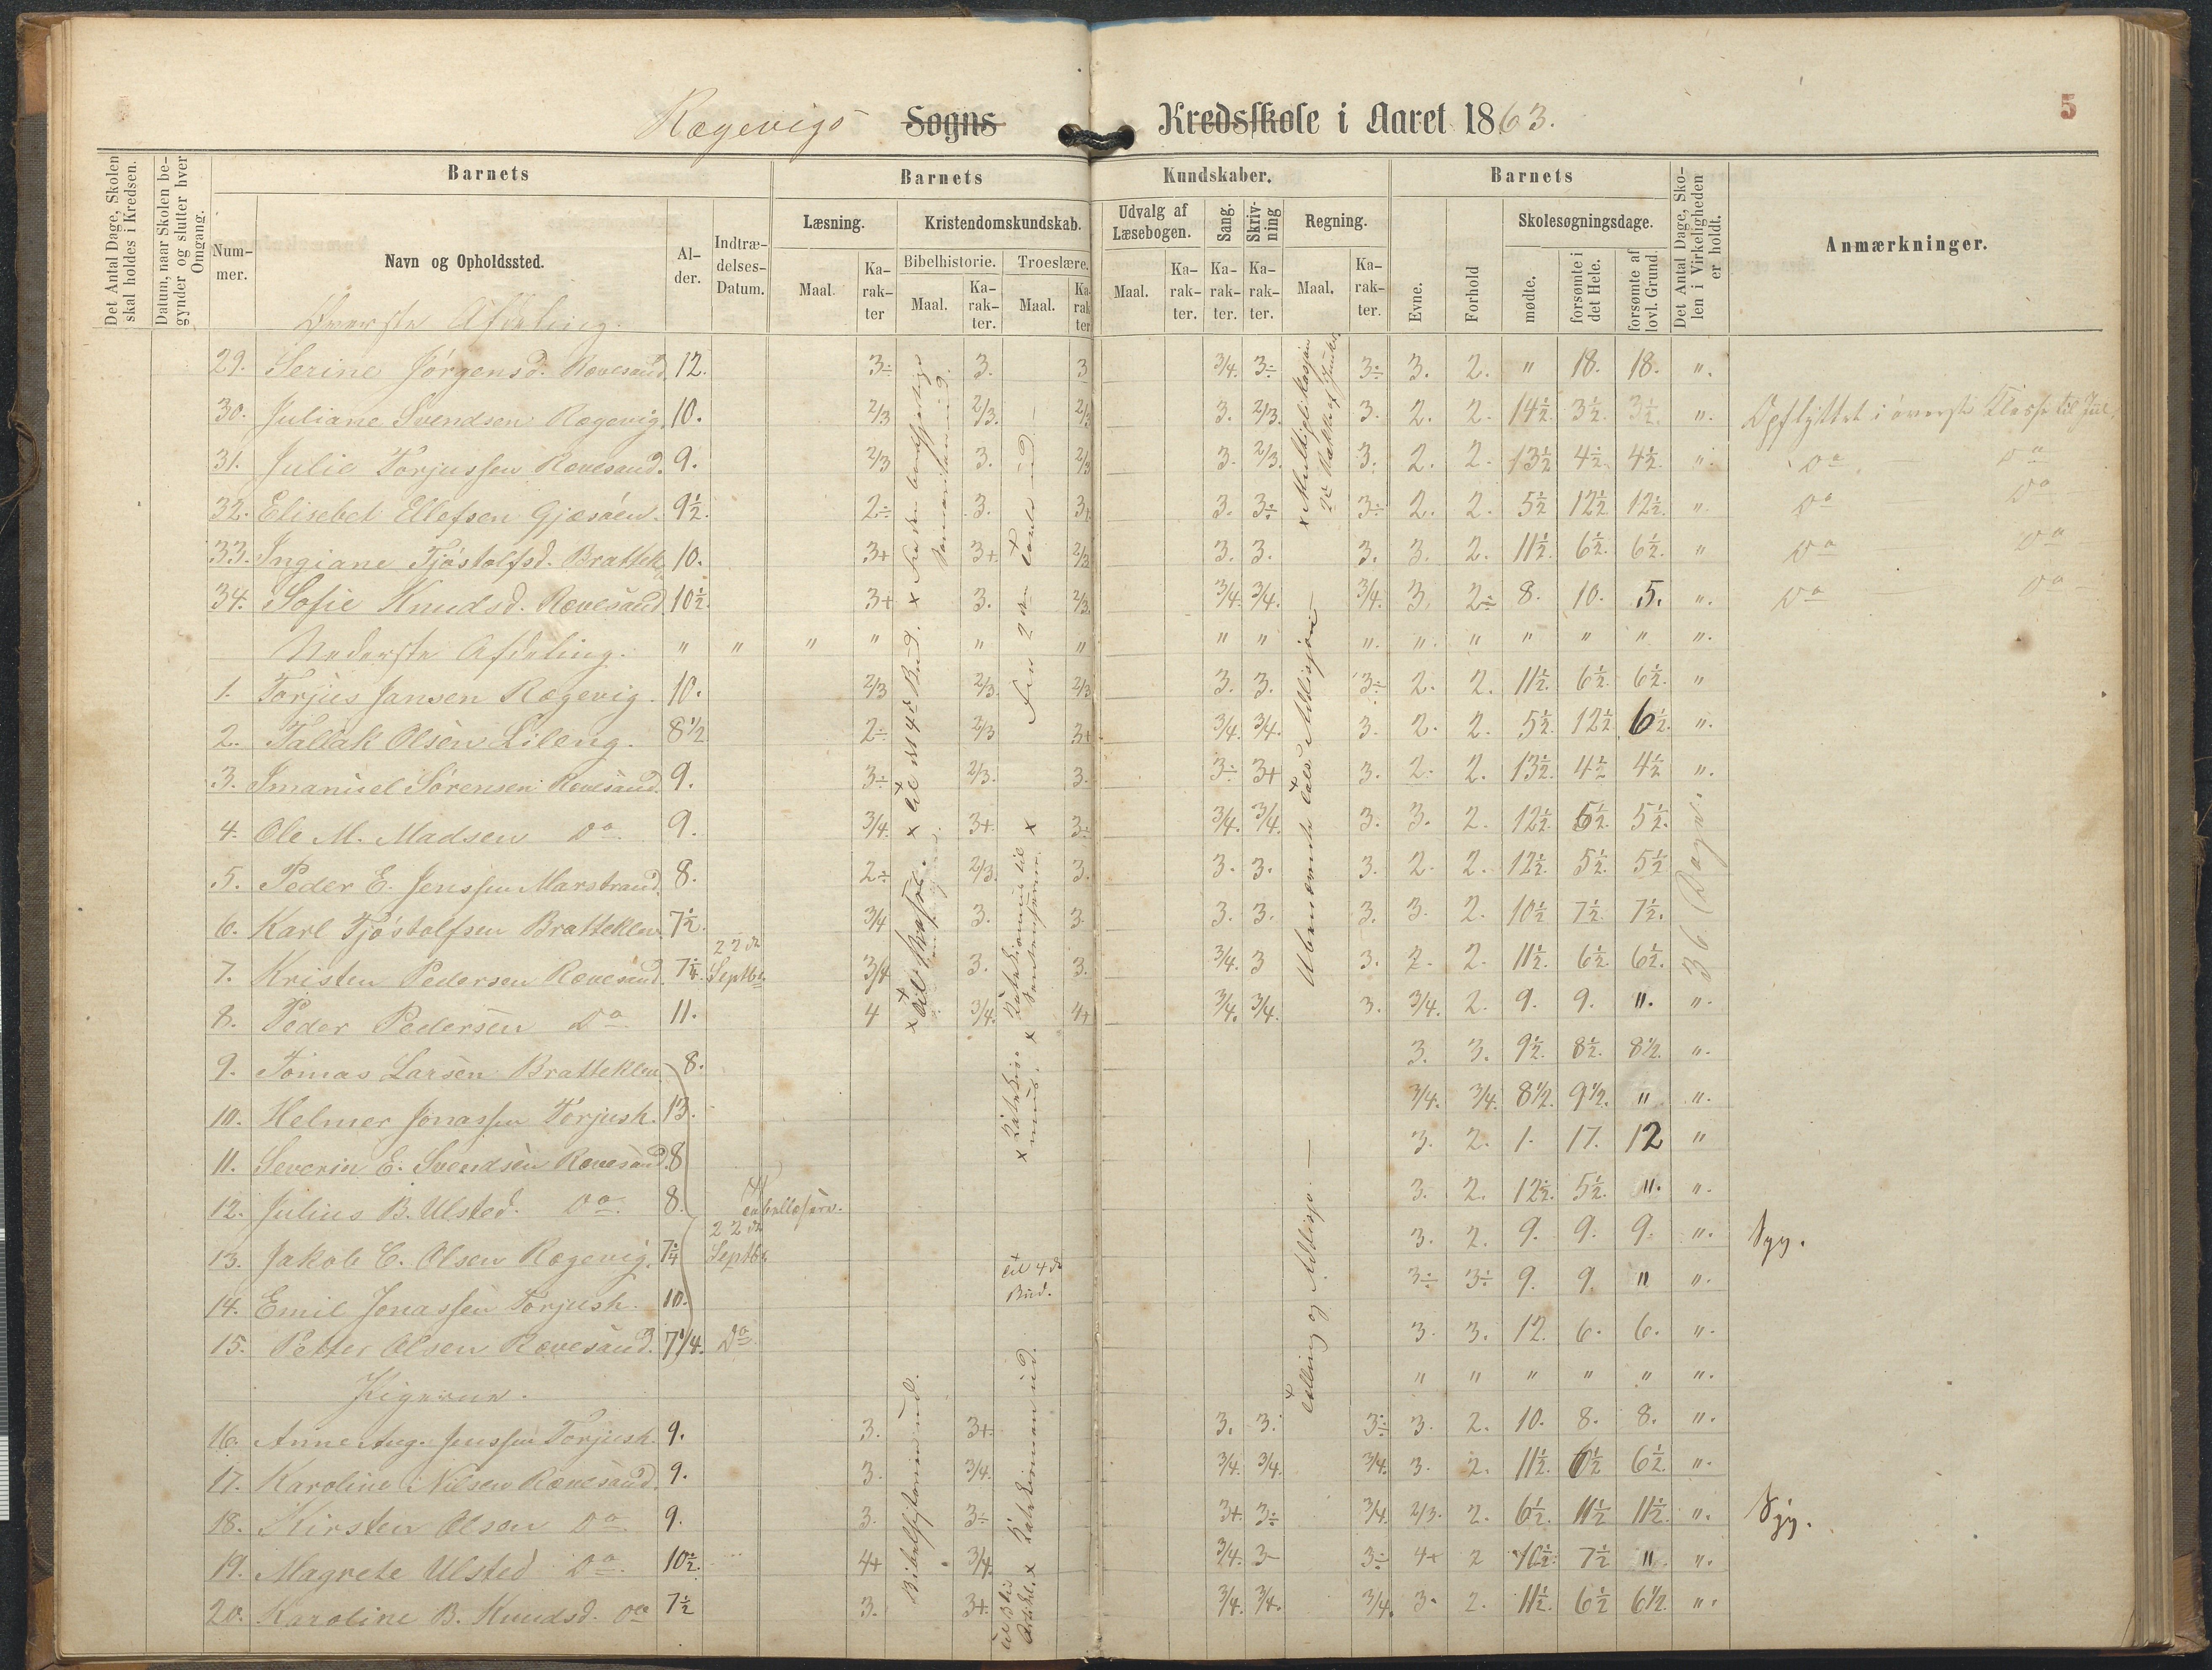 Rægevigs Sogns Kredsskole i Aaret 1863.
5
Det Antal Dage, Skolen skal holdes i Kredsen.
Datum, naar Skolen begynder og slutter hver Omgang.
Barnets
Barnets
Kundskaber.
Barnets
Det Antal Dage, Skolen i Virkeligheden er holdt.
Anmærkninger.
Nummer.
Navn og Opholdssted.
Alder.
Indtrædelses-Datum.
Læsning.
Kristendomskundskab.
Udvalg af Læsebogen.
Sang.
Skrivning
Regning.
Evne.
Forhold
Skolesøgningsdage.
Maal.
Karakter
Bibelhistorie.
Troeslære.
Maal.
Karakter.
Maal.
Karakter
Maal.
Karakter.
Karakter.
Karakter.
Maal.
Karakter.
mødte.
forsømte i det Hele.
forsømte af lovl. Grund.
Øverste Afdeling.
29. Serine Jørgensd. Rævesand. 12. 3÷ 3. 3 3/4. 3÷ 3÷ 3. 2. " 18. 18. ".
30. Juliane Svendsen Rægevig. 10. 2/3 2/3. 2/3 3. 2/3. 3. 2. 2. 14½. 3½. 3½. ". Opflyttet i øverste Klasse til Jul.
31. Julie Torjussen Rævesand. 9. 2/3 3. 2/3 3. 2/3. 3. 2. 2. 13½ 4½. 4½. ". Do Do
32. Elisebet Ellefsen Gjesøen. 9½. 2÷ 3. 3+ 3. 3÷ 3÷ 2. 2. 5½ 12½ 12½. ". Do Do
33. Ingiane Tjøstolfsd. Brattek. 10. 3+ 3+. 2/3 3. 3. 3. 3. 2. 11½. 6½. 6½. " Do Do
34. Sofie Knudsd. Rævesand 10½. 3+ 3. 2/3. 3/4. 3/4. 3/4. 3. 2÷ 8. 10. 5. ". Do Do
Nederste Afdeling. " " " " " " " " ". ". " " " " ".
1. Torjus Jansen Rægevig. 10. 2/3 2/3. 2/3 3. 3. 3÷ 2. 2. 11½. 6½. 6½. "
2. Tallak Olsen Lileng. 8½ 2÷ 2/3 3+ 3/4. 3/4. 3. 2. 2. 5½. 12½ 6½. ".
3. Imanuel Sørensen Rævesand. 9. 3÷ 2/3. 3. 3÷ 3+ 3. 2. 2. 13½. 4½ 4½ ".
4. Ole M. Madsen Do 9. 3/4. 3+. 3÷ 3/4. 3/4. 3. 3. 2. 12½. 5½. 5½.
5. Peder E. Jenssen Marstrand. 8. 2÷ 2/3. 3. 3. 3. 3. 2. 2. 12½. 5½. 5½
6. Karl Tjøstolfsen Bratteklev. 7½. 3/4 3. 3. 3. 3. 3. 3. 2. 10½ 7½. 7½.
7. Kristen Pedersen Rævesand. 7¼. 22de Septbr 3/4 3. 3. 3/4. 3 3. 2. 2. 11½. 6½. 6½.
8. Peder Pedersen Do 11. 4 3/4. 4+ 3/4. 3/4. 3. 3/4. 2. 9. 9. ". ".
36 Dage.
9. Tomas Larsen Bratteklev. 8. 3. 3. 9½. 8½. 8½. ".
10. Helmer Jonassen Torjush. 13. 3/4. 3/4. 8½. 9½. " ".
11. Severin E. Svendsen Rævesand. 8 3. 2. 1. 17. 12 "
12. Julius B. Ulsted. Do. 8. 3. 2. 12½. 5½. ". ".
13. Jakob C. Olsen Rægevig. 7¼ 22de Septbr 3. 2. 9. 9. 9. ". Syg.
14. Emil Jonassen Torjush. 10. 3÷ 3÷ 9. 9. " ".
15. Petter Olsen Rævesand. 7¼. Do 3. 3. 12. 6. 6. ".
Pigerne. " " " " " ".
16. Anne Aug. Jenssen Torjush. 9. 3. 3+ 3. 3. 3÷ 3. 2. 10. 8. 8. ".
17. Karoline Nilsen Rævesand. 9. 3. 3/4. 3/4. 3/4. 3/4. 3. 2. 11½. 6½ 6½. ".
18. Kirsten Olsen Do 9. 3. 3÷ 3+ 3÷ 3/4. 2/3. 2. 6½. 11½ 11½. ". Syg.
19. Magrete Ulsted Do. 10½. 4+ 3/4. 3/4. 3- 3÷ 4+ 2 10½. 7½ ". ".
20. Karoline B. Knudsd. Do 7½ 3. 3+. 3/4. 3/4. 3/4. 3. 2. 11½. 6½ 6½. ".
x til det 4de Bud.
til 4de Bud.
x Multiplikasjon
Ubenævnte Tals Addisjon
Tælling og Addisjo.
Bibelhistorien ud.